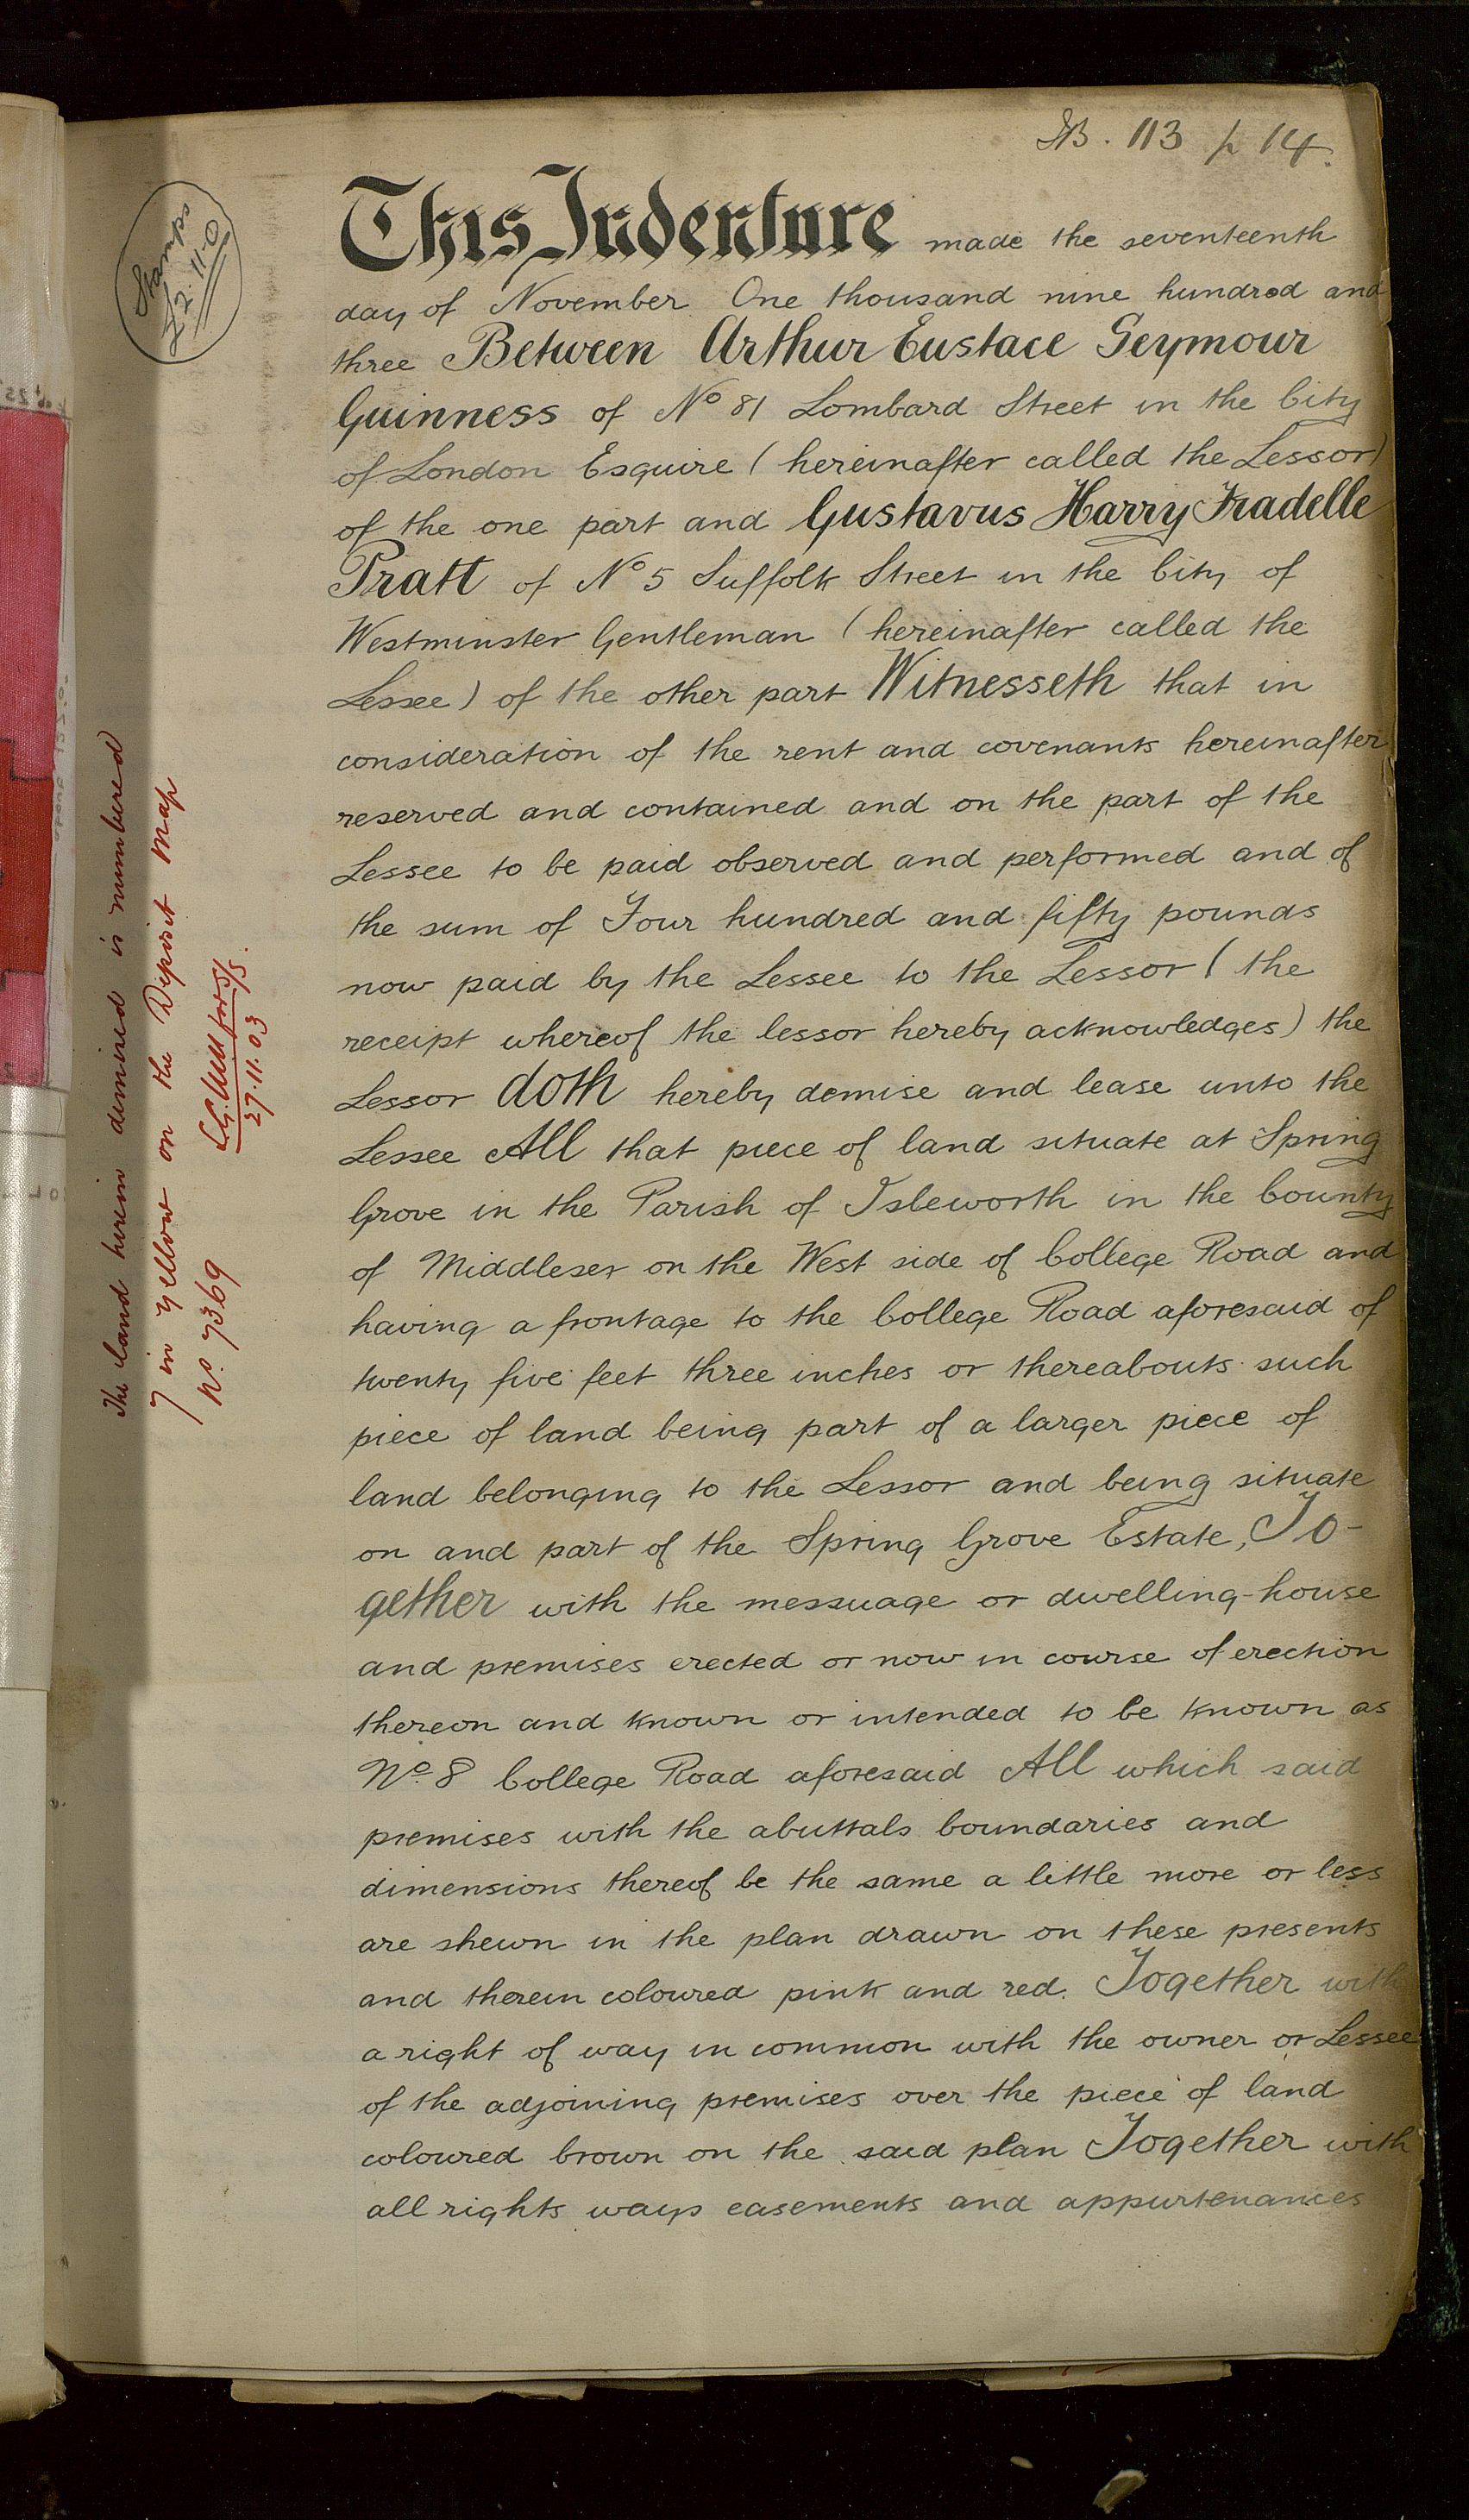 113 p 14.
Stamps
£2.11.0
This Indenture made the seventeenth
day of November One thousand nine hundred and
three Between Arthur Eustace Seymour
Guinness of No 81 Lombard Street in the City
of London Esquire (hereinafter called the Lessor)
of the one part and Gustavus Harry Fradelle
Pratt of No 5 Suffolk Street in the City of
Westminster Gentleman (hereinafter called the
Lessee) of the other part Witnesseth that in
consideration of the rent and covenants hereinafter
reserved and contained and on the part of the
Lessee to be paid observed and performed and of
the sum of Four hundred and fifty pounds
now paid by the Lessee to the Lessor (the
receipt whereof the lessor hereby acknowledges) the
Lessor doth hereby demise and lease unto the
Lessee All that piece of land situate at Spring
Grove in the Parish of Isleworth in the County
of Middlesex on the West side of College Road and
having a frontage to the College Road aforesaid of
twenty five feet three inches or thereabouts such
piece of land being part of a larger piece of
land belonging to the Lessor and being situate
on and part of the Spring Grove Estate, To-
gether with the messuage or dwelling-house
and premises erected or now in course of erection
thereon and known or intended to be known as
No. 8 College Road aforesaid All which said
premises with the abuttals boundaries and
dimensions thereof be the same a little more or less
are shewn in the plan drawn on these presents
and therein coloured pink and red. Together with
a right of way in common with the owner or Lessee
of the adjoining premises over the piece of land
coloured brown on the said plan Together with
all rights ways easements and appurtenances
The land herein demised is numbered
7 in yellow on the Deposit Map
No. 7369
27.11.03